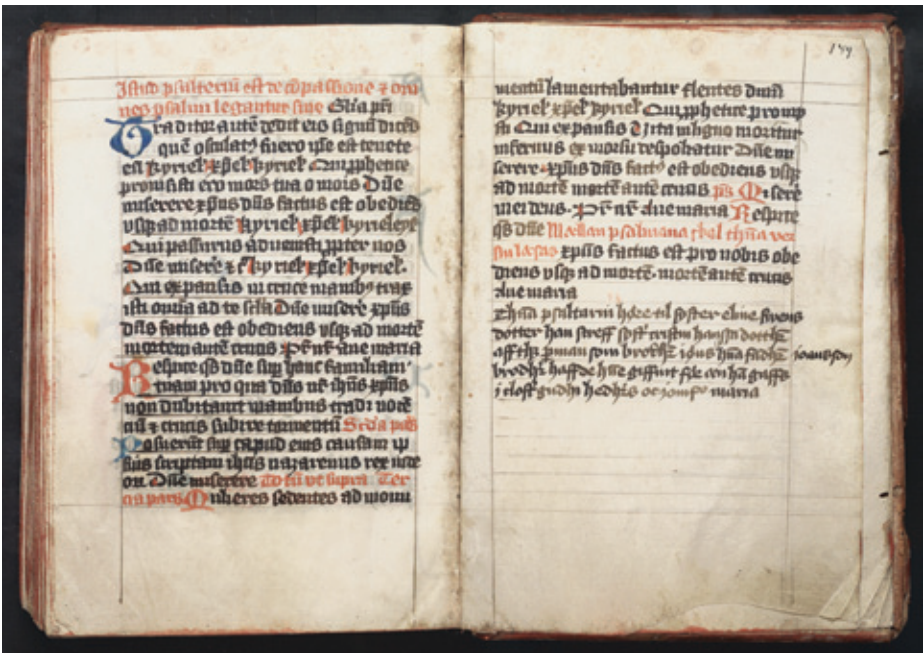 Istud psalteriū est de cōpassione ⁊ om
nes psalmi legantur sine Glīa pr̄i
Traditor autē dedit eis signū dicēs
quē osculatꝰ fuero ip̄e est tenete
eū kyriel̄ xp̄el̄ kyriel̄ Qui ꝓphetice
promisisti ero mors tua o mors Dn̄e
miserere xp̄us dn̄s factus est obediēs
vsq̢ ad mortē kyriel̄ xp̄el̄ kyrieleys
Qui passurus aduenisti ꝓpter nos
Dn̄e miserē ⁊c̄ kyriel̄ xp̄el̄ kyriel̄
Qui expansis in cruce manibꝰ trax
isti omīa ad te sc̄la Dn̄e miserē xp̄us
dn̄s factus est obediens vsq̢ ad mortē
mortem autē crucis Pr̄ nr̄ aue maria
Respice qs̄ dn̄e sup̄ hanc familiam
tuam pro qua dn̄s nr̄ ih̄us xp̄us
non dubitauit manibus tradi nocē
ciū ⁊ crucis subire tormentū Scd̄a ps̄
Posuerūt sup̄ capud eius causam ip
sius scriptam ih̄us nazarenus rex iude
on Dn̄e miserere Totū vt supra Ter
cia pars Mulieres sedentes ad monu
149
mentū lamentabantur flentes dn̄m
kyriel̄ xp̄el̄ kyriel̄ Qui ꝓphetice promp
sti Qui expansis ī ligno moritur
infernus ex morsu despoliatur Dn̄e mi
serere xp̄us dn̄s factꝰ est obediens vsq̢
ad mortē mortē autē crucis ps̄ Miserē
mei deus. Pr̄ nr̄ Aue maria Respice
qs̄ dn̄e Mællan psalmana
xp̄us factus est pro nobis obe
diens vsq̢ ad mortē. mortē autē crucis
Aue maria
Thāā psaltarin høre til syster eline
dotter han screff syst̄ cristin hanssa dotth̄
aff som brodh̄ iøns
joansson
brodh̄ haffde giffuit
i clost̄ gudhi hedh̄s oc maria